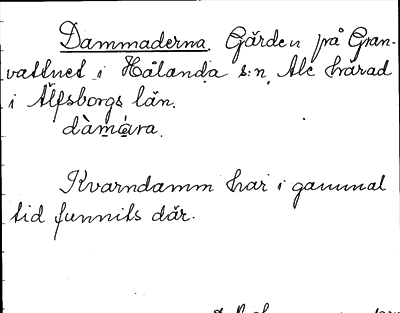 Dammaderna. Gärden på Gran-
vattnet i Hålanda s:n, Ale härad
i Älfsborgs län.
dàmára.
Kvarndamm har i gammal
tid funnits där.